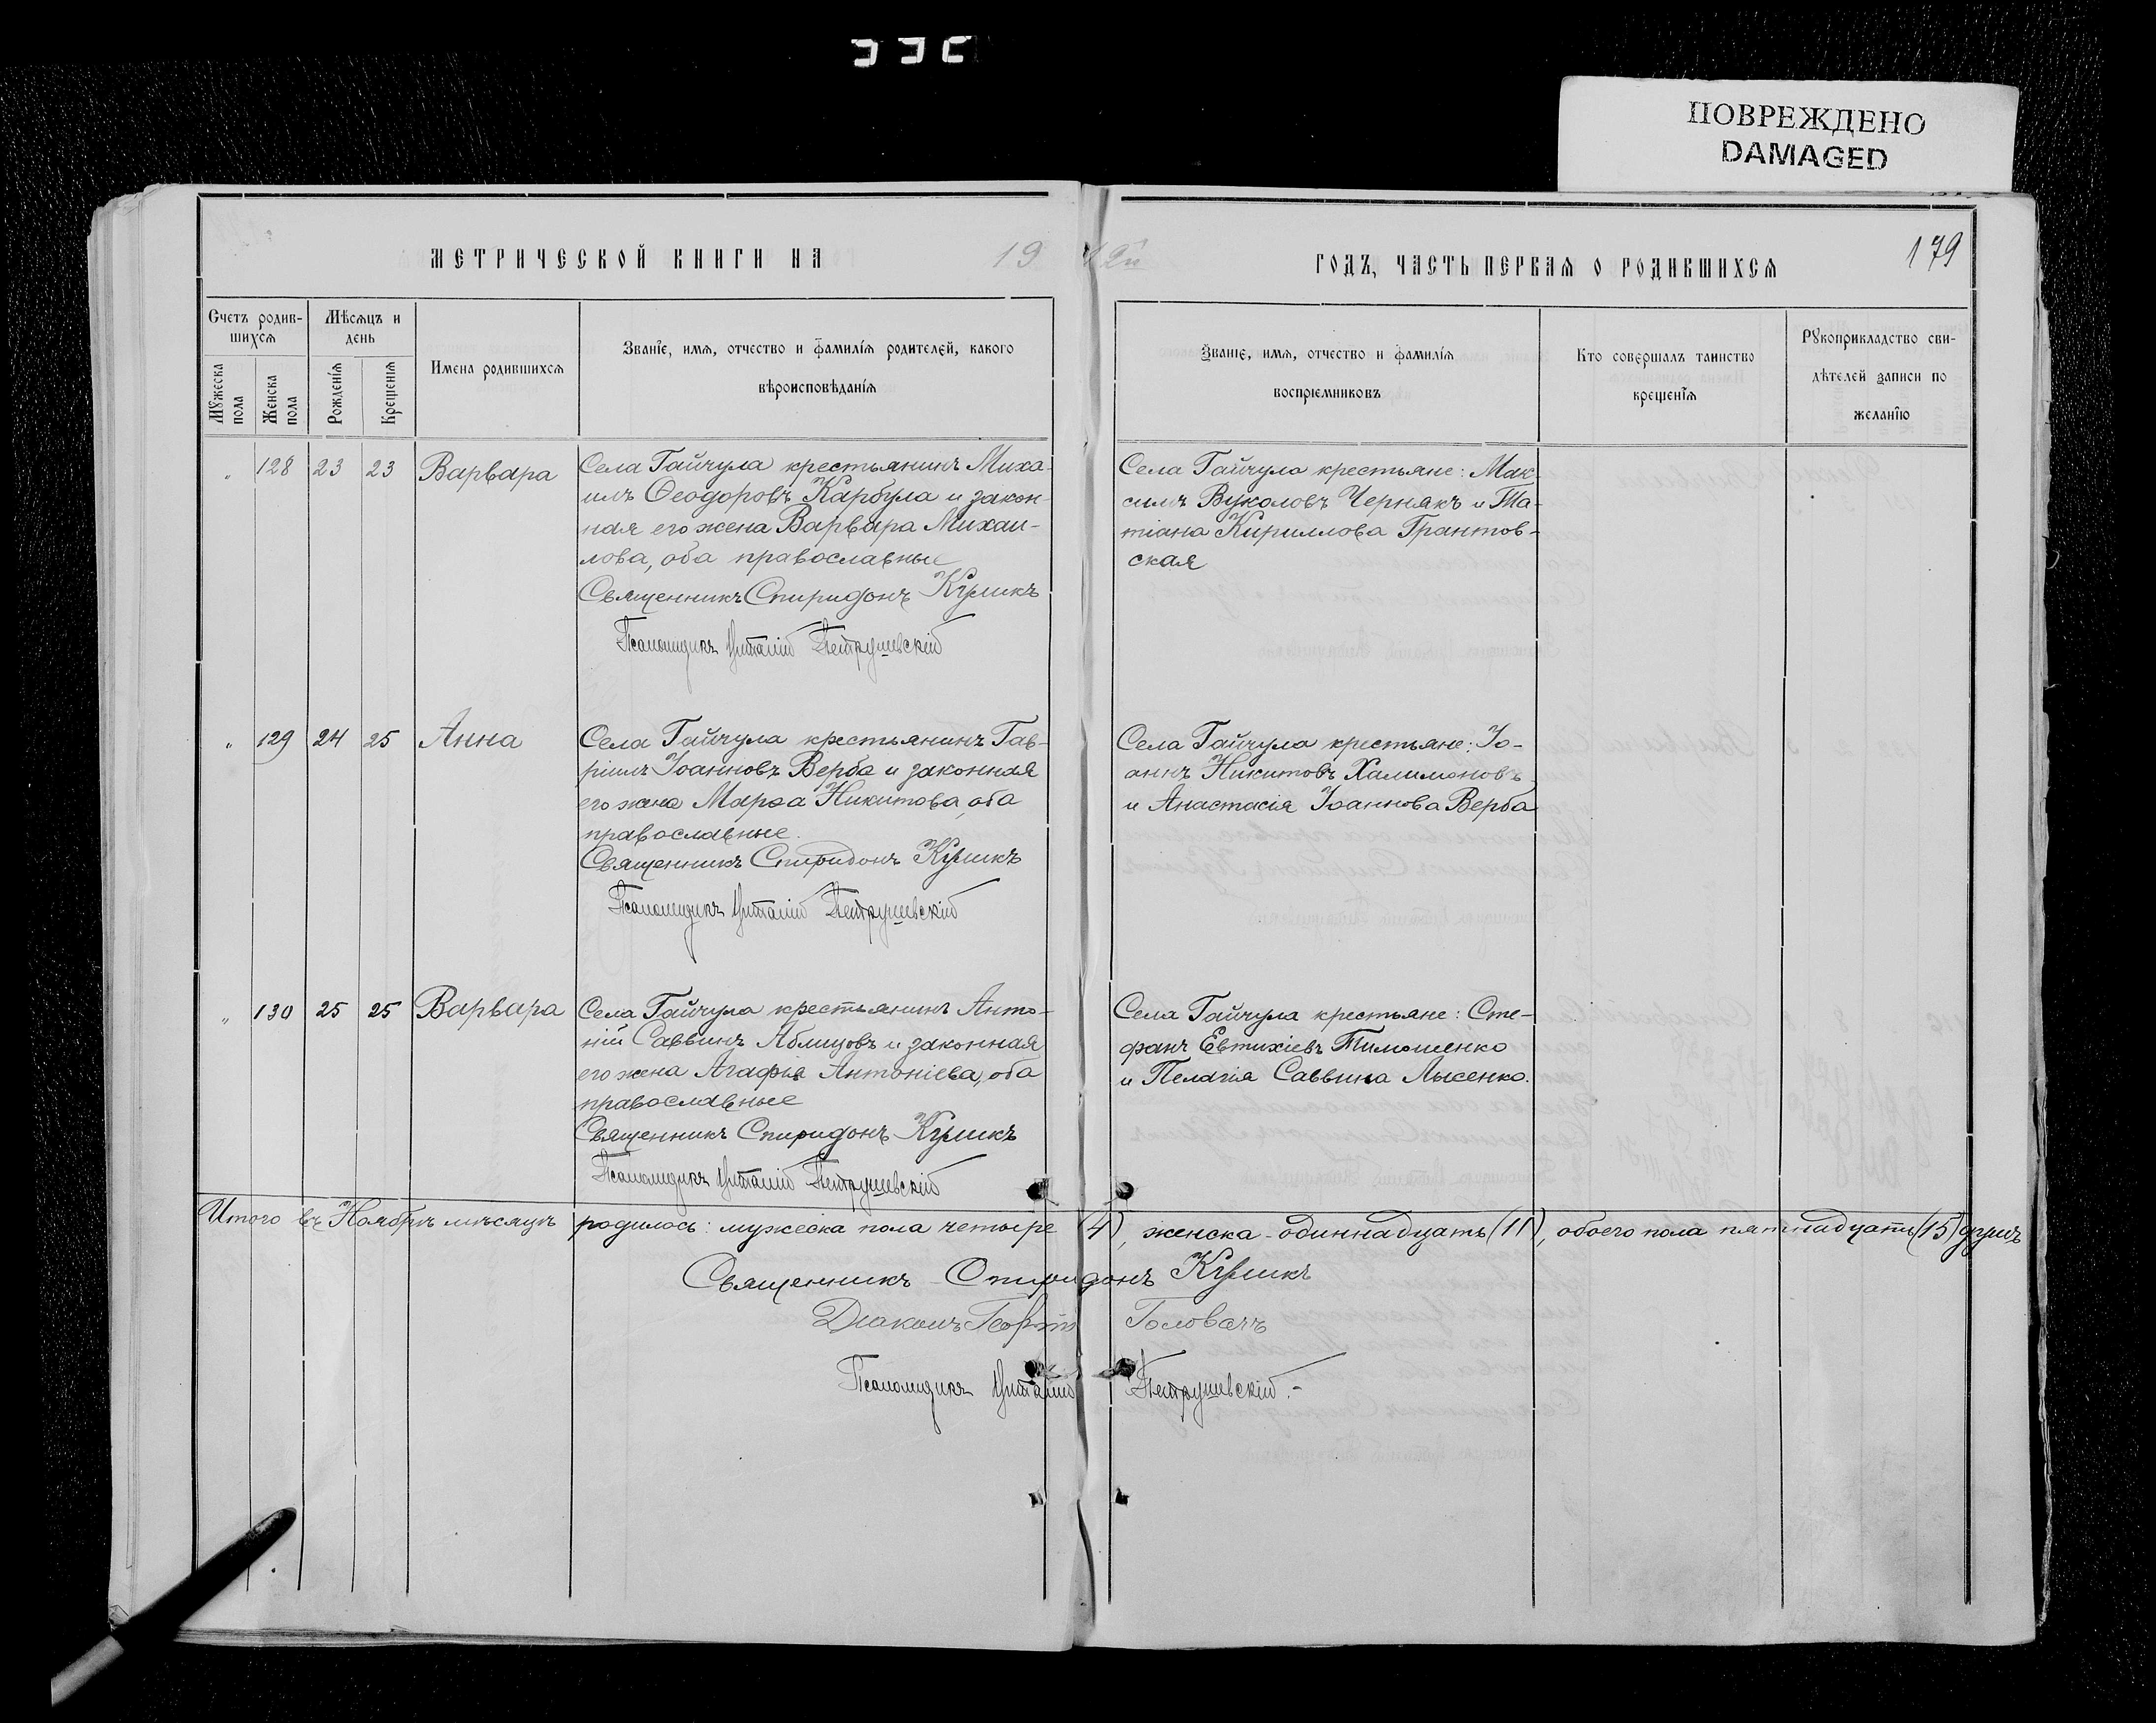 ПОВРЕЖДЕНО
DAMAGED
МЕТРИЧЕСКОЙ КНИГИ НА 19
12й ГОДЪ, ЧАСТЬ ПЕРВАЯ О РОДИВШИХСЯ
179
Счетъ родив-
шихся
Мѣсяцъ и
день
Мужеска
пола
Женска
пола
Рожденія
Крещенія
Имена родившихся
Званіе, имя, отчество и фамилія родителей, какого
вѣроисповѣданія
Званіе, имя, отчество и фамилія
воспріемниковъ
Кто совершалъ таинство
крещенія
Рукоприкладство сви-
дѣтелей записи по
желанію
" 128 23 23 Варвара
Села Гайчула крестьянинъ Миха-
илъ Ѳеодоровъ Карбула и закон-
ная его жена Варвара Михаи-
лова, оба православные
Священникъ Спиридонъ Куликъ
Псаломщикъ Виталій Петрушевскій
Села Гайчула крестьяне: Мак-
симъ Вуколовъ Чернякъ и Та-
тіана Кириллова Грантов-
ская
" 129 24 25 Анна
Села Гайчула крестьянинъ Гав-
ріилъ Іоанновъ Верба и законная
его жена Марѳа Никитова, оба
православные.
Священникъ Спиридонъ Куликъ
Псаломщикъ Виталій Петрушевскій
Села Гайчула крестьяне: Іо-
аннъ Никитовъ Халимоновъ
и Анастасія Іоаннова Верба
" 130 25 25 Варвара
Села Гайчула крестьянинъ Анто-
ній Саввинъ Аблицовъ и законная
его жена Агафія Антоніева, оба
православные
Священникъ Спиридонъ Куликъ
Псаломщикъ Виталій Петрушевскій
Села Гайчула крестьяне: Сте-
фанъ Евтихіевъ Тимошенко
и Пелагія Саввина Лысенко.
Итого въ Ноябрѣ мѣсяцѣ родилось: мужеска пола четыре (4), женска - одиннадцать (11), обоего пола пятнадцать (15) душъ
Священникъ Спиридонъ Куликъ
Діаконъ Георгій Головачъ
Псаломщикъ Виталій Петрушевскій.-